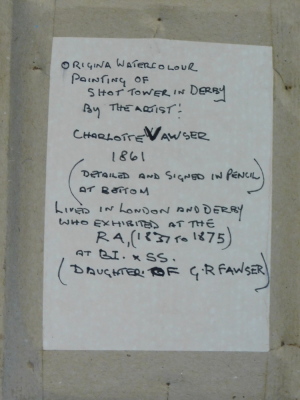 ORIGINA WATERCOLOUR
PAINTING OF
SHOT TOWER IN DERBY
BY THE ARTIST:
CHARLOTTE VAWSER
1861
(DETAILED AND SIGNED IN PENCIL
AT BOTTOM)
LIVED IN LONDON AND DERBY
WHO EXHIBITED AT THE
RA, (1837 TO 1875)
AT B.I. x SS.
(DAUGHTER OF G.R FAWSER)